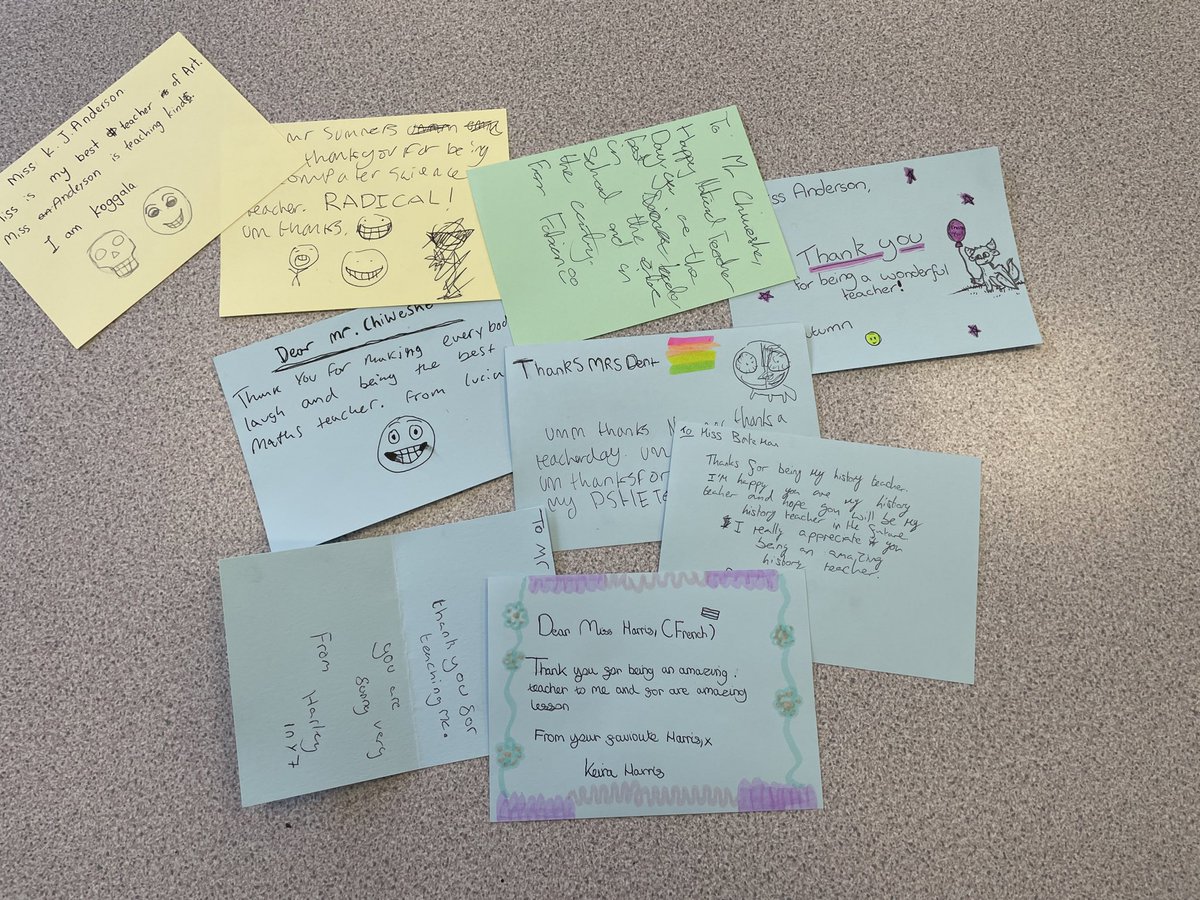 Miss K. J. Anderson
Miss is my best teacher of Art.
Miss Anderson is teaching kinds.
I am koggala
mr summers
thankyou for being
computer science
teacher. RADICAL!
um thanks.
To: Mr Chiweshe,
Happy National Teacher
Day, you are the
best
in the
school and in
the country.
From Fabrico
ss Anderson,
Thank you
for being a wonderful
teacher!
utumn
Dear mr. Chiweshe
Thank You for making everybod
laugh and being the best
Maths teacher. From Lucia
Thanks MRS Dent
umm thanks thanks a
teacherday. um
um thanks for
my PSHE Te
To Miss Bateman
Thanks for being my history teacher.
I'm happy you are my history
teacher and hope you will be my
history teacher in the future.
I really appreciate you
being an amazing
history teacher.
To Mr
thank you for
teaching me.
you are
funny very
From Harley
in Y7
Dear Miss Harris, (French)
Thank you for being an amazing
teacher to me and for are amazing
lesson
From your favioute Harris, x
Keira Harris